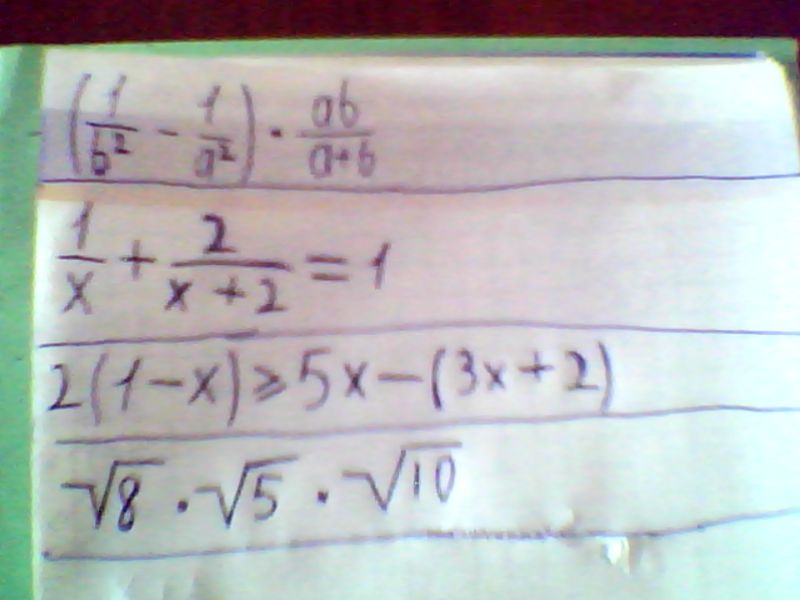 (1/b² - 1/a²) · ab/(a+b)
1/x + 2/(x+2) = 1
2(1-x)⩾5x-(3x+2)
√8 · √5 · √10